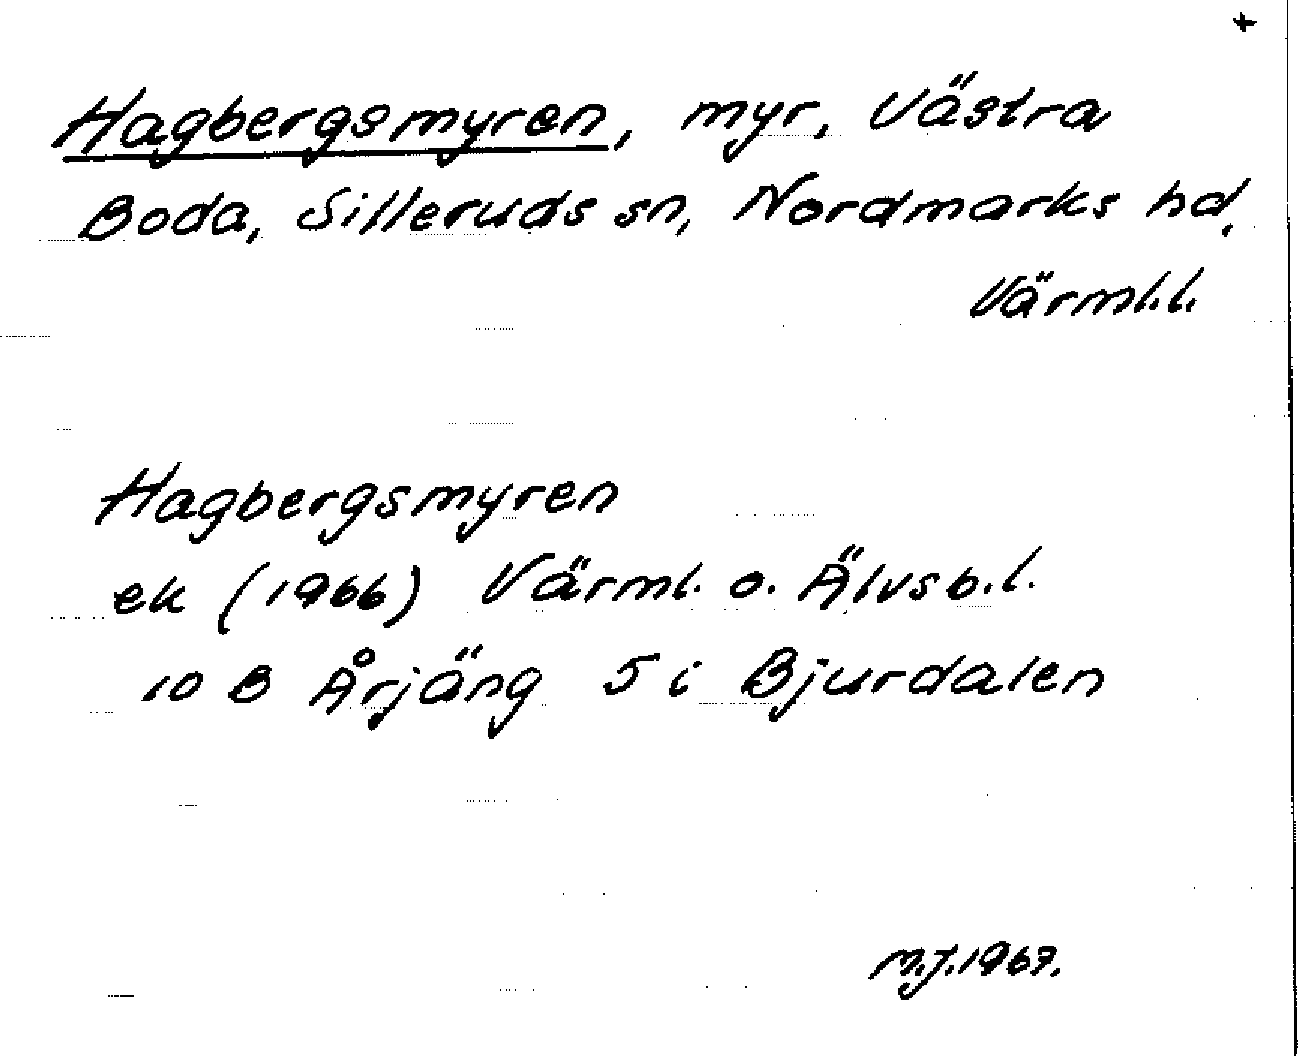 +
Hagbergsmyren, myr, Västra
Boda, Silleruds sn, Nordmarks hd,
Värml.l.
Hagbergsmyren
ek (1966) Värml. o. Älvsb.l.
10 B Årjäng 5 i Bjurdalen
M.J.1967.